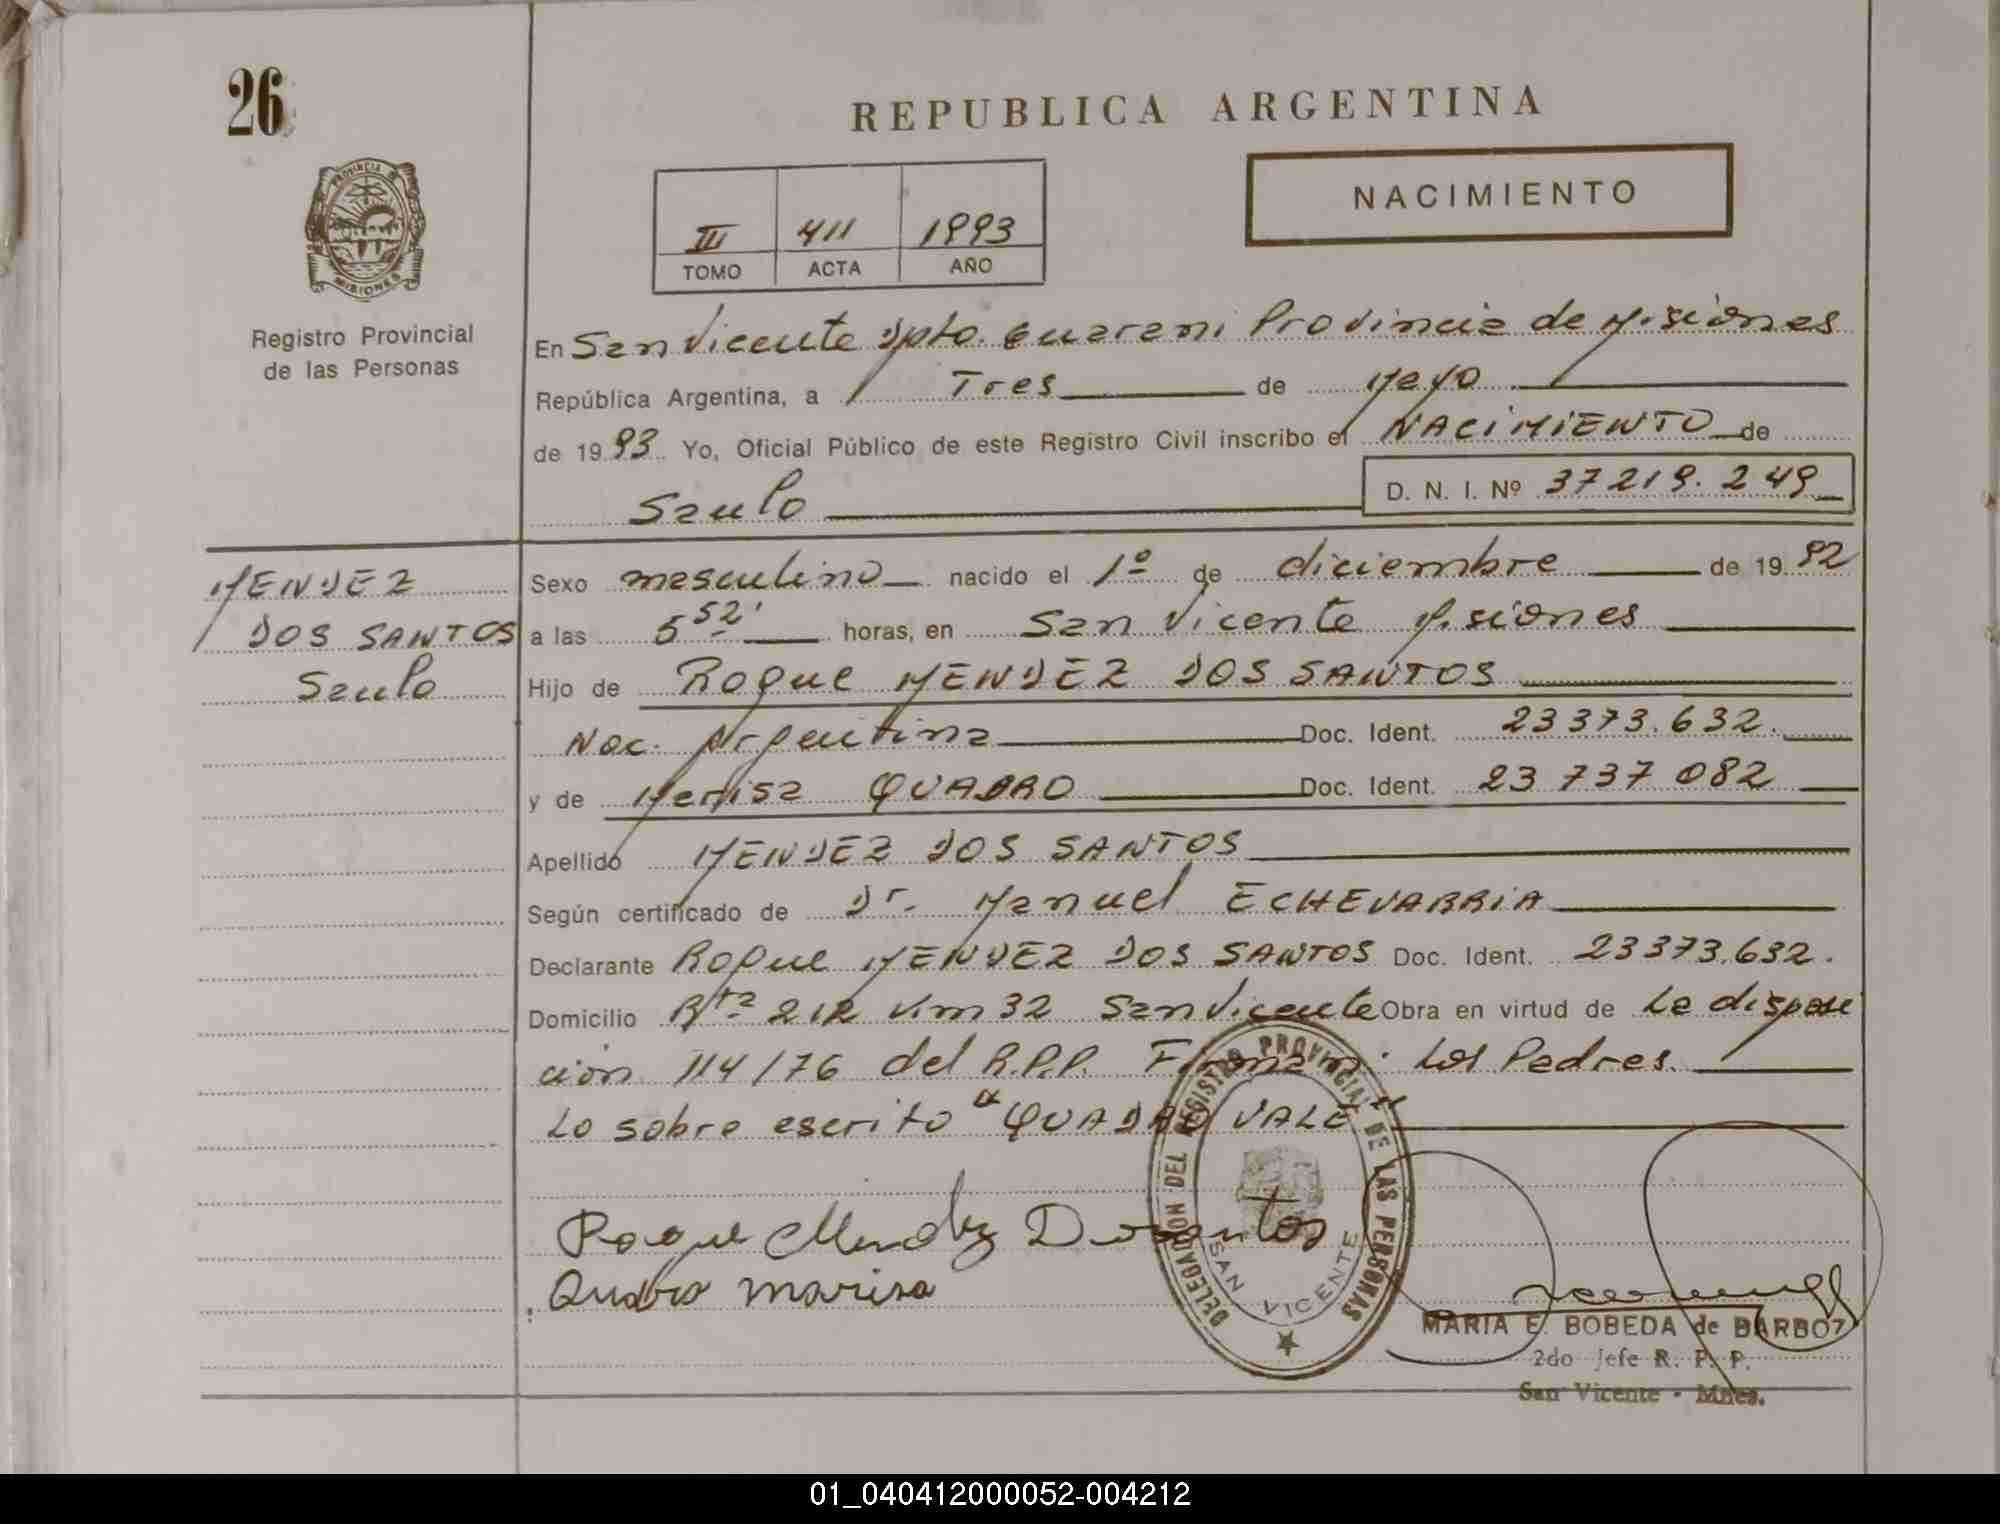 26
REPUBLICA ARGENTINA
NACIMIENTO
III 411 1993
TOMO ACTA AÑO
PROVINCIA DE MISIONES
Registro Provincial
de las Personas
En San Vicente Dpto. Guarani Provincia de Misiones
República Argentina, a Tres de Mayo
de 1993 Yo, Oficial Público de este Registro Civil inscribo el NACIMIENTO de
Saulo D. N. I. Nº 37219.249
MENDEZ
DOS SANTOS
Saulo
Sexo masculino nacido el 1º de diciembre de 1992
a las 5 52' horas, en San Vicente Misiones
Hijo de Roque MENDEZ DOS SANTOS
Nac. Argentina Doc. Ident. 23373.632.
y de Marisa QUADRO Doc. Ident. 23 737 082
Apellido MENDEZ DOS SANTOS
Según certificado de Dr. Manuel ECHEVARRIA
Declarante Roque MENDEZ DOS SANTOS Doc. Ident. 23373.632.
Domicilio Rta 212 Km 32 San Vicente Obra en virtud de La disposi
ción 114/76 del R.P.P. Firman: Los Padres.
Lo sobre escrito "QUADRO VALE"
Roque Mendez Dosantos
Quadro Marisa
DELEGACION DEL REGISTRO PROVINCIAL DE LAS PERSONAS
SAN VICENTE
MARIA E. BOBEDA de BARBOZ
2do Jefe R. P. P.
San Vicente - Mnes.
01_040412000052-004212